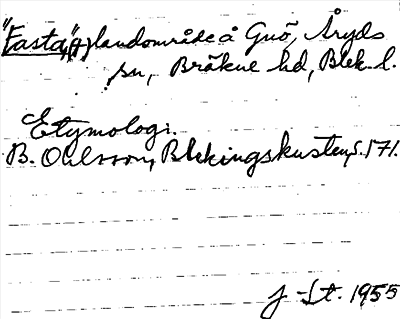 "Fasta", landområde å Gnö, Åryds
sn, Bräkne hd, Blek. l.
Etymologi.
B. Ohlsson, Blekingskusten, s. 171.
J -St. 1955